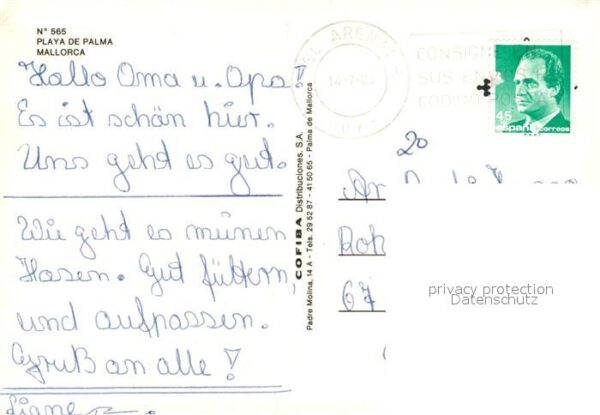 N° 565
PLAYA DE PALMA
MALLORCA
Hallo Oma u. Opa!
Es ist schön hier.
Uns geht es gut.
Wie geht es meinen
Hasen. Gut füttern,
und aufpassen.
Gruß an alle!
COFIBA Distribuciones, S.A.
Padre Molina, 14 A - Tels. 29 52 87 - 41 50 65 - Palma de Mallorca
CONSIGNE EN
SUS EN
CODIGO PO
45
españa correos
20
67
privacy protection
Datenschutz